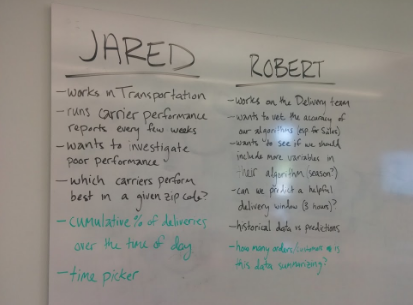 JARED
-works in Transportation
-runs carrier performance
reports every few weeks
-wants to investigate
poor performance
-which carriers perform
best in a given zip code?
-cumulative % of deliveries
over the time of day
-time picker
ROBERT
-works on the Delivery team
-wants to vet the accuracy of
our algorithms (esp for
-wants to see if we should
include more variables in
their algorithm (season?)
-can we predict a helpful
delivery window (3 hours)?
-historical data vs predictions
-how many orders
this data summarizing?